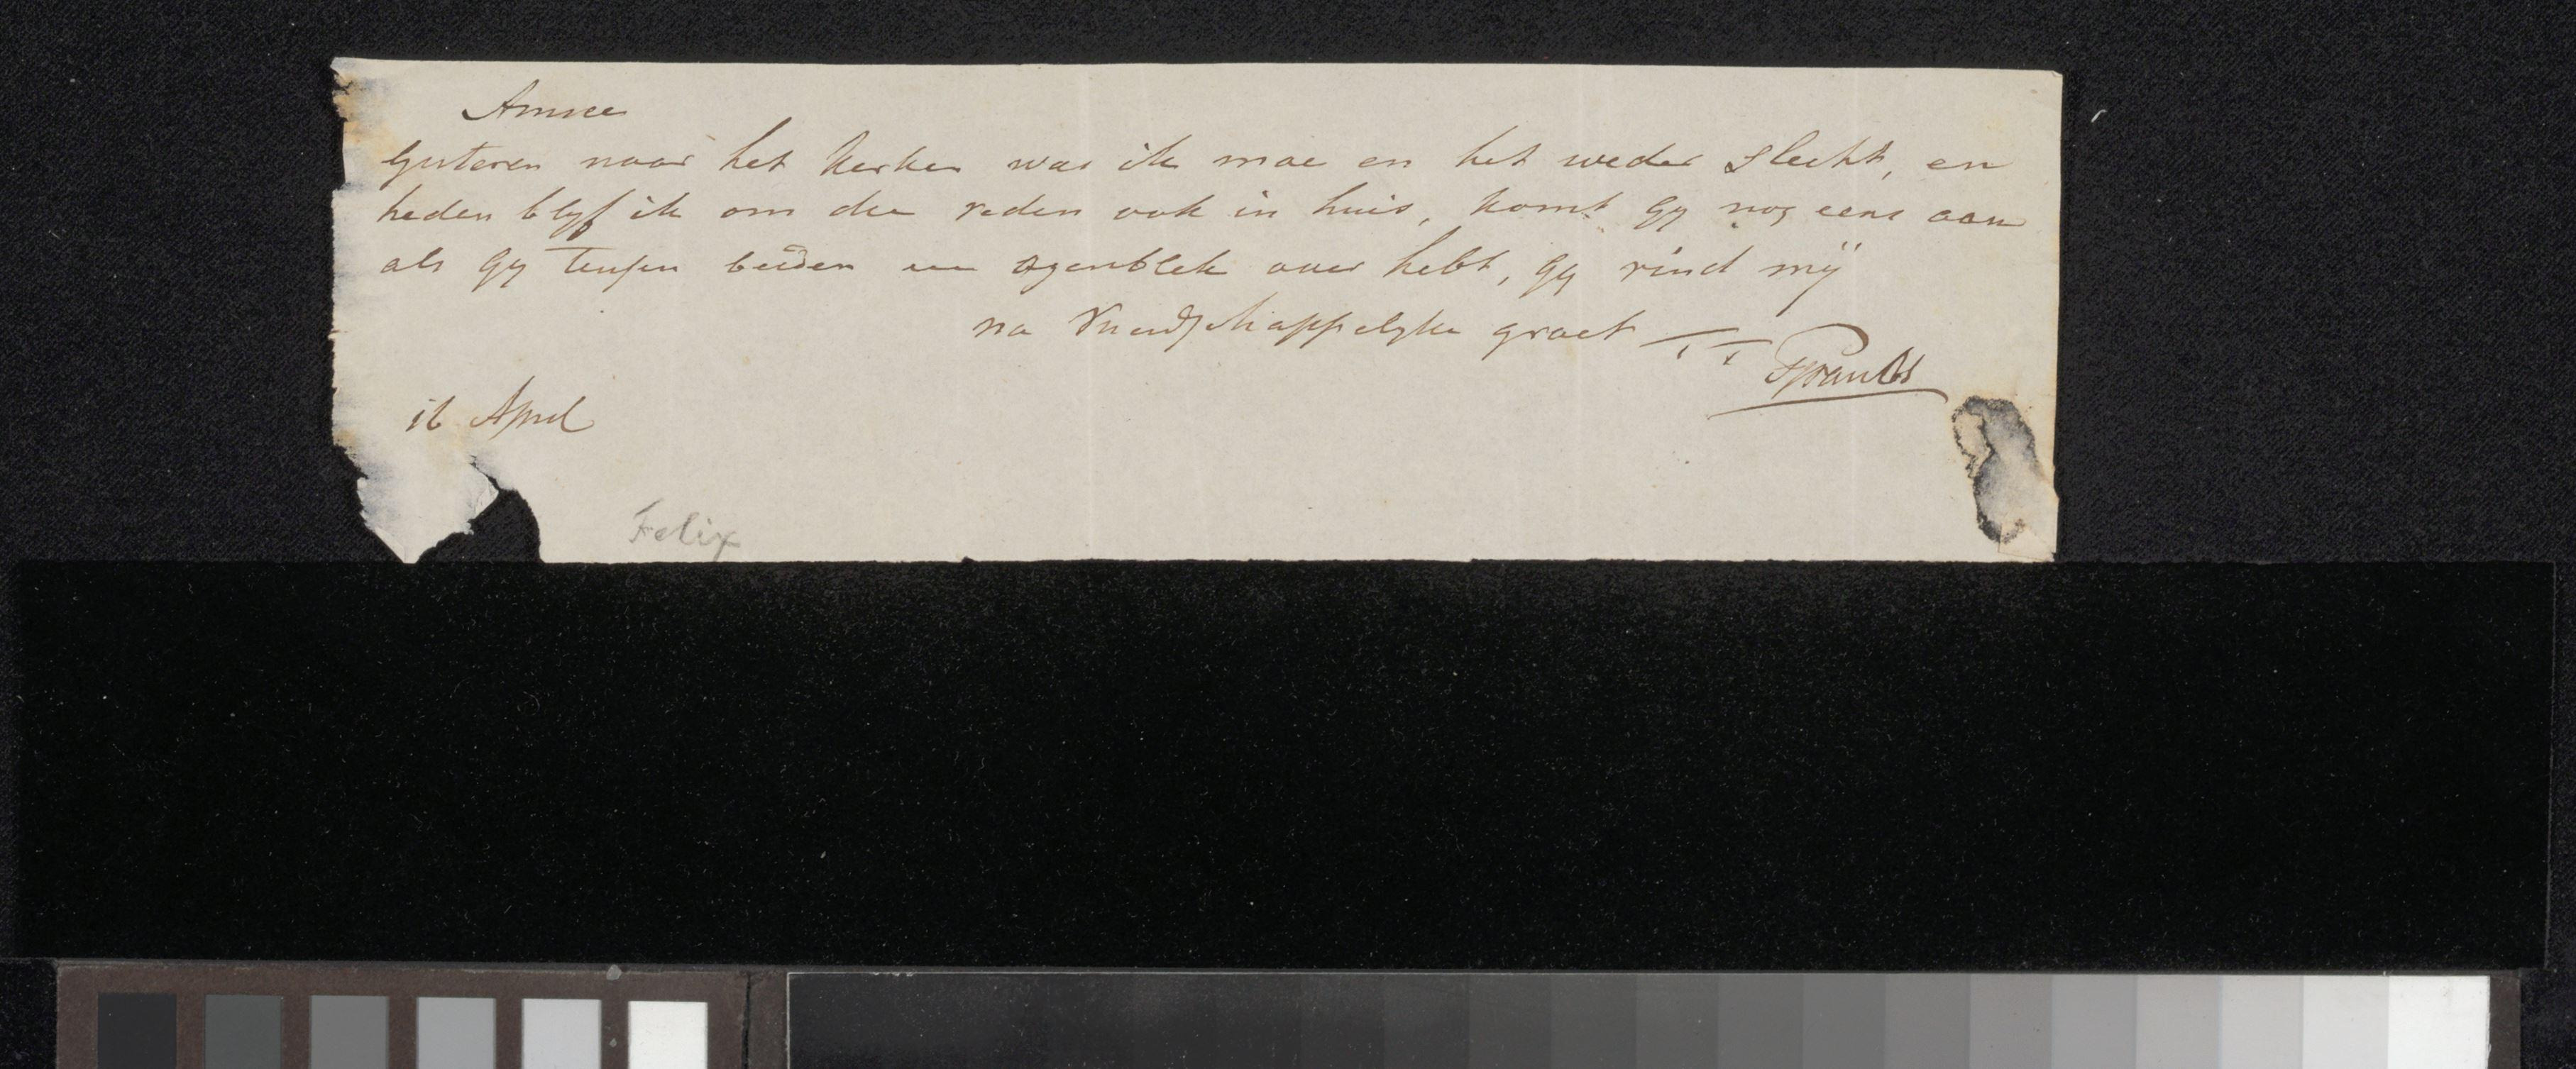 Amice
Gisteren naar het Kerker was ik moe en het weder slecht, en
heden blyf ik om die reden ook in huis, komt gy nog eens aan
als Gy tussen beiden een ogenblik over hebt, gy vind mÿ
na Vriendschappelyke groet TT
16 April
Felix